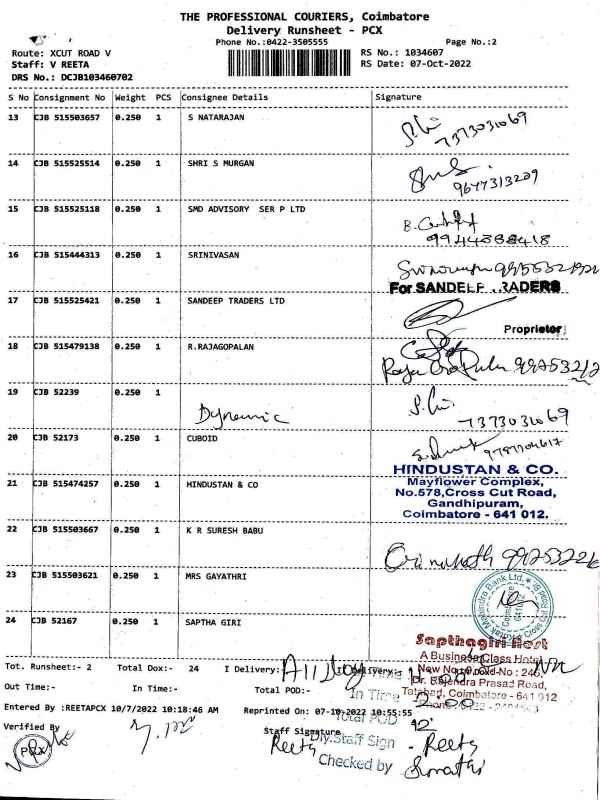 THE PROFESSIONAL COURIERS, Coimbatore
Delivery Runsheet - PCX
Phone No.:0422-3505555
Page No.:2
Route: XCUT ROAD V
RS No.: 1034607
Staff: V REETA
RS Date: 07-Oct-2022
DRS No.: DCJB103460702
S No Consignment No Weight PCS Consignee Details Signature
13 CJB 515503657 0.250 1 S NATARAJAN
7373031069
14 CJB 515525514 0.250 1 SHRI S MURGAN
9677313209
15 CJB 515525118 0.250 1 SMD ADVISORY SER P LTD
16 CJB 515444313 0.250 1 SRINIVASAN
For SANDEEP TRADERS
17 CJB 515525421 0.250 1 SANDEEP TRADERS LTD
Proprietor
18 CJB 515479138 0.250 1 R.RAJAGOPALAN
19 CJB 52239 0.250 1
Dynamic
7373031069
20 CJB 52173 0.250 1 CUBOID
21 CJB 515474257 0.250 1 HINDUSTAN & CO
HINDUSTAN & CO.
Mayflower Complex,
No.578,Cross Cut Road,
Gandhipuram,
Coimbatore - 641 012.
22 CJB 515503667 0.250 1 K R SURESH BABU
23 CJB 515503621 0.250 1 MRS GAYATHRI
24 CJB 52167 0.250 1 SAPTHA GIRI
Sapthagiri Host
A Business Class Hotel
New No: 9, Old No: 246,
Dr. Rajendra Prasad Road,
Tatabad, Coimbatore - 641 012
Tot. Runsheet:- 2 Total Dox:- 24 I Delivery:
Out Time:- In Time:- Total POD:- In Time
Entered By :REETAPCX 10/7/2022 10:18:46 AM Reprinted On: 07-10-2022 10:55:55
Total POD
Verified By Staff Signature
Dly.Staff Sign - Reeta
Reeta
PCX
Checked by